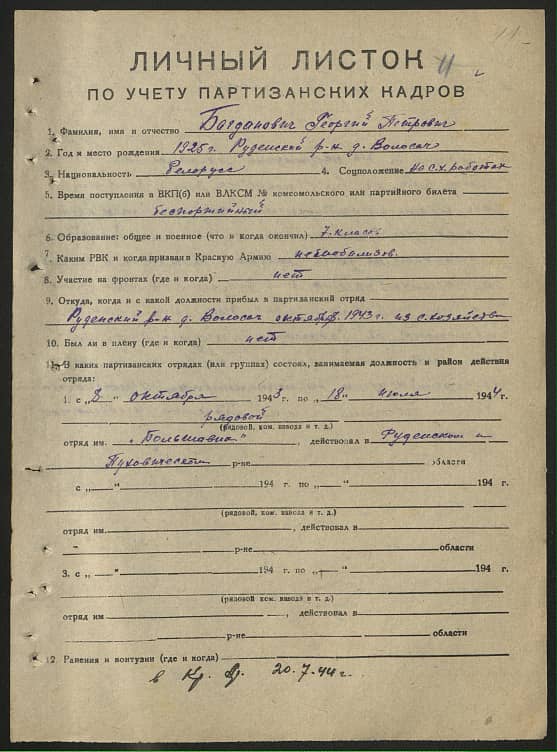 11
ЛИЧНЫЙ ЛИСТОК
ПО УЧЕТУ ПАРТИЗАНСКИХ КАДРОВ
1. Фамилия, имя и отчество Багданович Георгий Петрович
2. Год и место рождения 1925 г. Руденский р-н д. Волосач
3. Национальность Белорусс 4. Соцположение на с.х. работах
5. Время поступления в ВКП(б) или ВЛКСМ № комсомольского или партийного билета
беспартийный
6. Образование: общее и военное (что и когда окончил) 7. класс
7. Каким РВК и когда призван в Красную Армию
8. Участие на фронтах (где и когда) нет
9. Откуда, когда и с какой должности прибыл в партизанский отряд
Руденский р-н д. Волосач октябр. 1943 г. из с. хозяйства
10. Был ли в плену (где и когда) нет
11. В каких партизанских отрядах (или группах) состоял, занимаемая должность и район действия
отряда:
1. с „8" октября 1943 г. по „18" июля 1944 г.
рядовой
(рядовой, ком. взвода и т. д.)
отряд им. „Большавик", действовал в Руденском и
Пуховическом р-не области
с „ " 194 г. по „ " 194 г.
(рядовой, ком. взвода и т. д.)
отряд им. , действовал в
р-не области
3. с „ " 194 г. по „ " 194 г.
(рядовой ком. взвода и т. д.)
отряд им , действовал в
р-не области
12. Ранения и контузии (где и когда)
в Кр. А. 20.7.44 г.